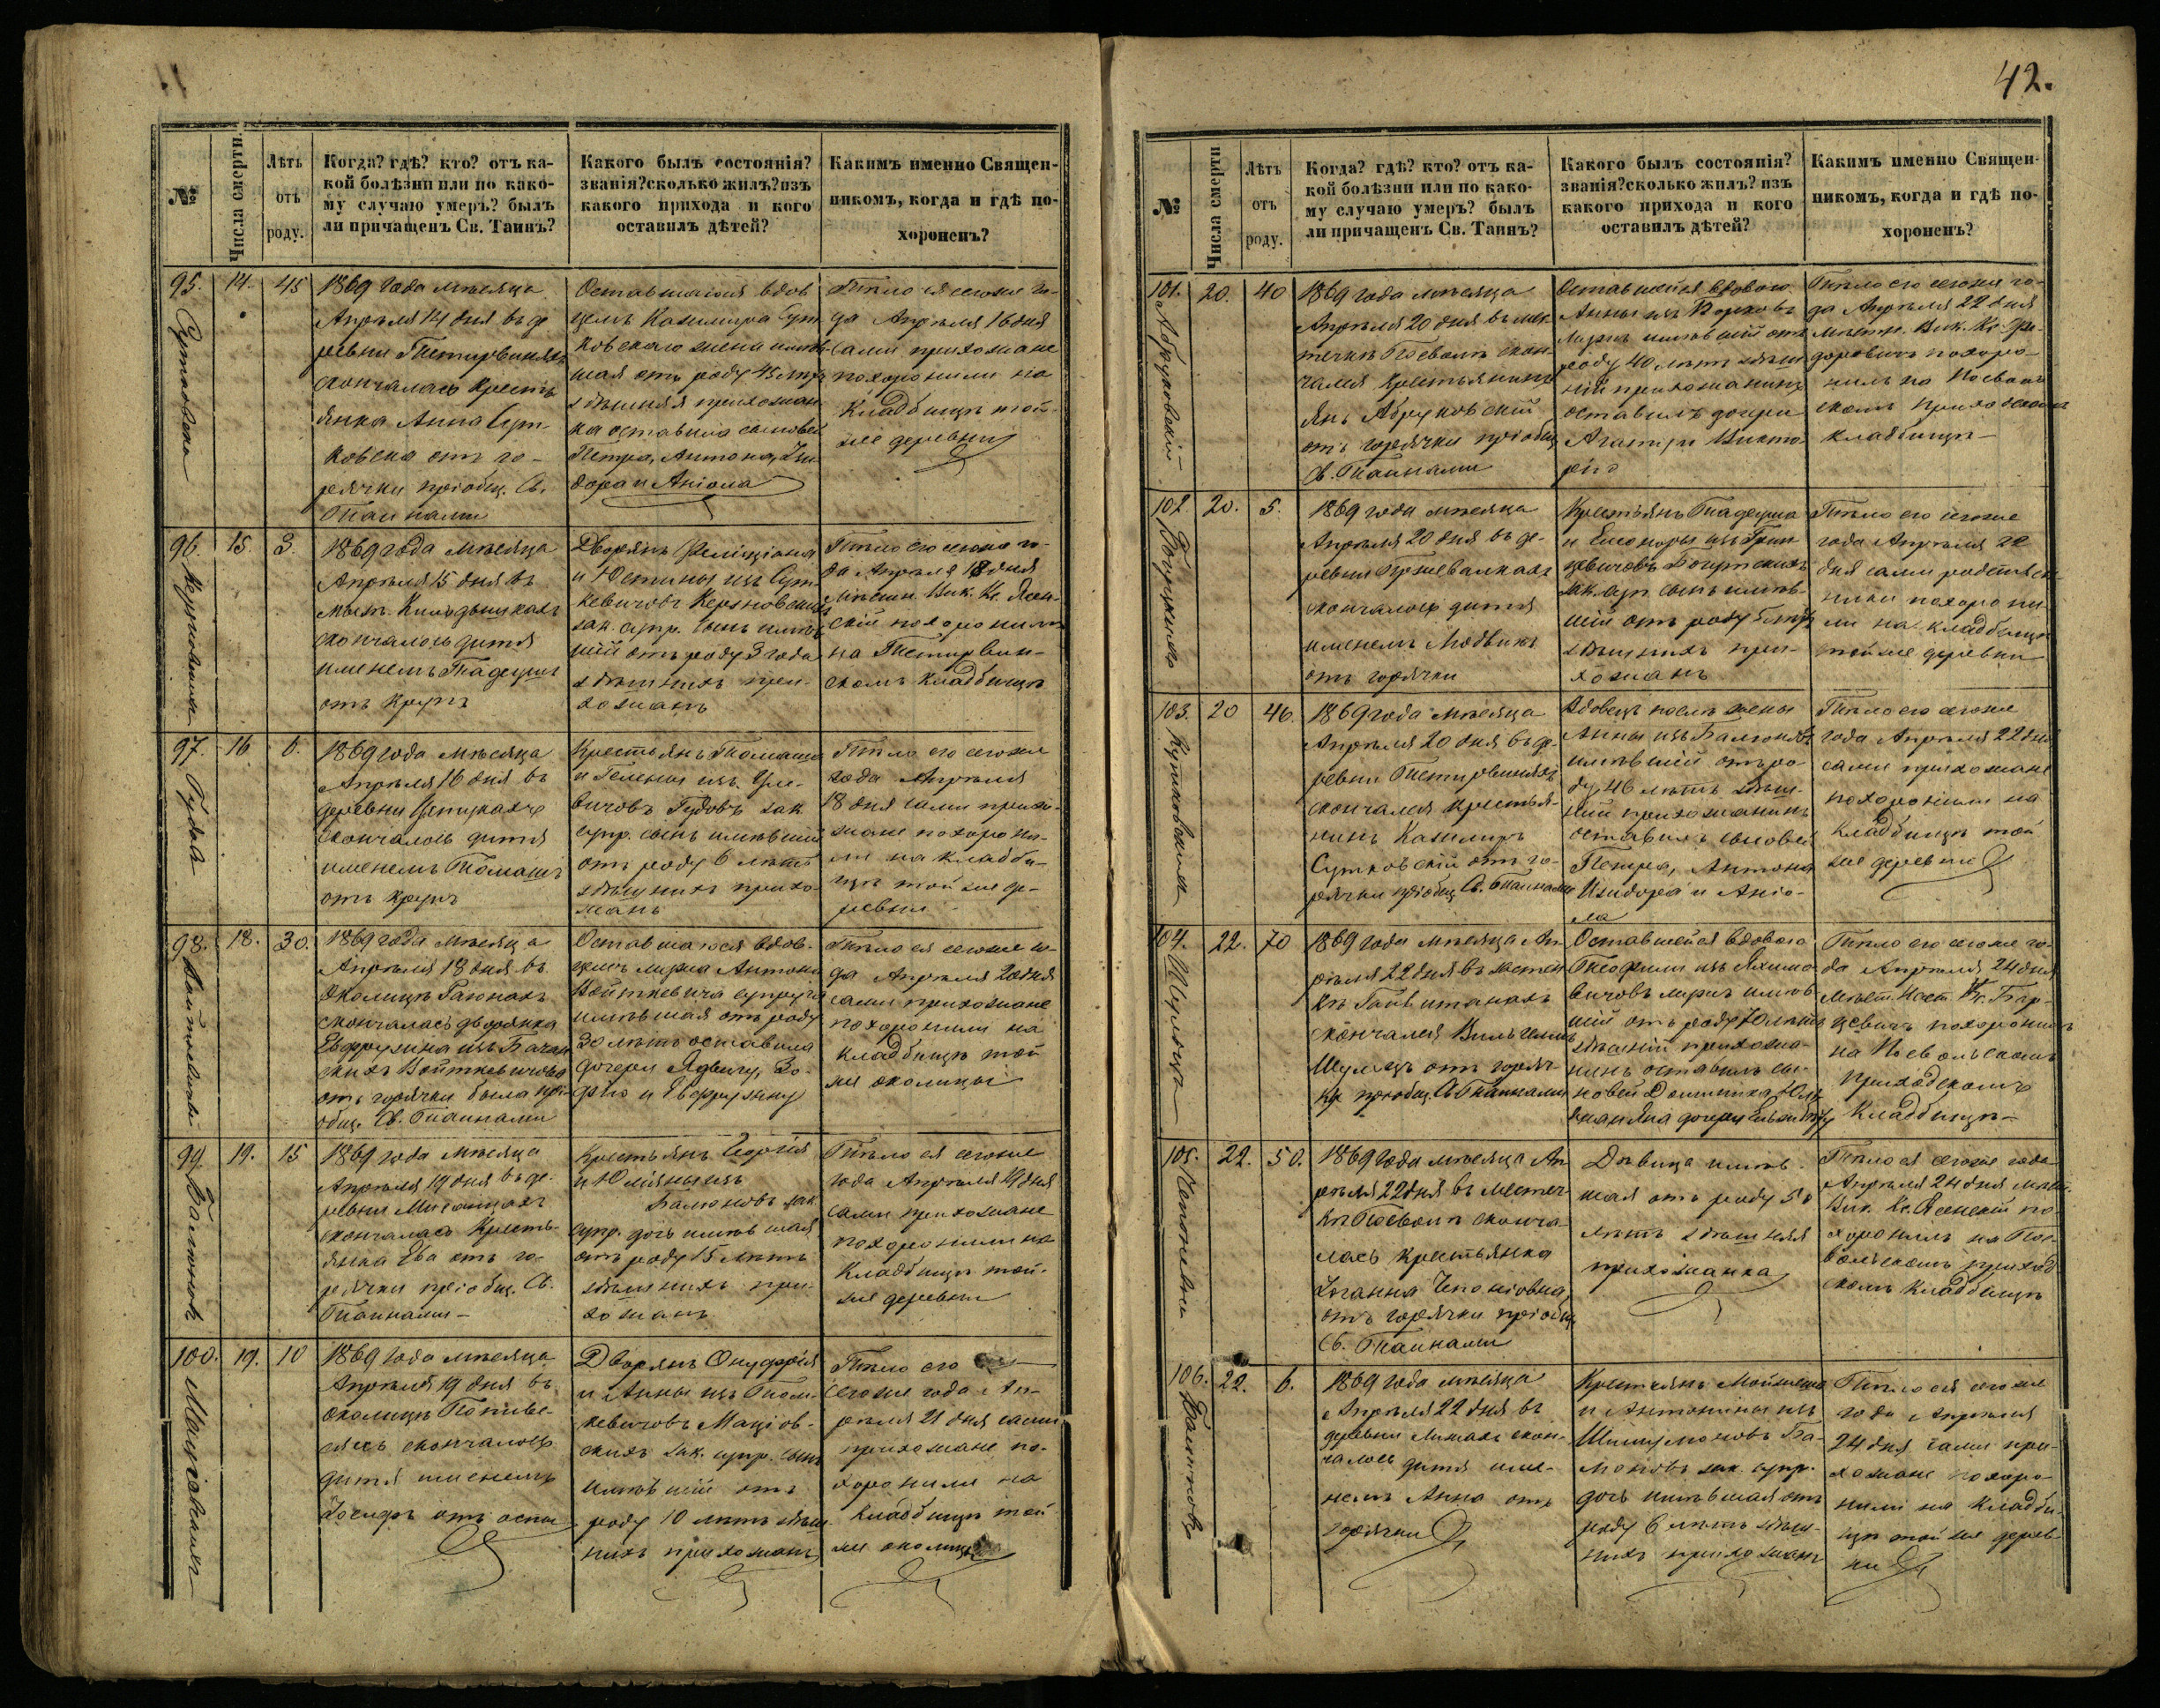 42.
№
Числа смерти.
Лѣтъ
отъ
роду.
Когда? гдѣ? кто? отъ ка-
кой болѣзни или по како-
му случаю умеръ? былъ
ли причащенъ Св. Таинъ?
Какого былъ состоянія?
званія? сколько жилъ? изъ
какого прихода и кого
оставилъ дѣтей?
Какимъ именно Священ-
никомъ, когда и гдѣ по-
хороненъ?
95.
14.
45
1869 года мѣсяца
Апрѣля 14 дня въ де
ревни
скончалась кресть
янка Анна Сут-
ковска отъ го-
рячки пріобщ. Св.
Тайнами
Оставшаяся вдов
цемъ Казимира Сут
ковскаго жена имѣв
шая отъ роду 45 лѣтъ
здѣшняя прихожан
ка оставила сыновей
Петра, Антона, Изи
дора и Аніола
Тѣло ея сегоже го-
да Апрѣля 16 дня
сами прихожане
похоронили на
кладбищѣ той-
же деревни
96.
15.
3.
1869 года мѣсяца
Апрѣля 15 дня въ
скончалось дитя
именемъ Тадеушъ
отъ крупъ
Дворянъ Феліціана
и Юстины изъ Сут
кевичовъ
зак. супр. сынъ имѣв
шій отъ роду 3 года
здѣшнихъ при-
хожанъ
Тѣло его сегоже го-
да Апрѣля 18 дня
Мѣстн. Вик. Кс. Ясен-
скій похоронилъ
на
скомъ кладбищѣ
97.
16.
6.
1869 года мѣсяца
Апрѣля 16 дня въ
деревни
скончалось дитя
именемъ Томашъ
отъ крупъ
Крестьянъ Томаша
и Гелены изъ
вичовъ Гудовъ зак.
супр. сынъ имѣвшій
отъ роду 6 лѣтъ
здѣшнихъ прихо-
жанъ
Тѣло его сегоже
года Апрѣля
18 дня сами прихо-
жане похорони-
ли на кладби-
щѣ той же де-
ревни
98.
18.
30.
1869 года мѣсяца
Апрѣля 18 дня въ
околицѣ
скончалась дворянка
Евфрузина изъ
скихъ Войткевичова
отъ горячки была прі-
общ. Св. Тайнами
Оставшаюся вдов-
цемъ мужа Антона
Войткевича супруга
имѣвшая отъ роду
30 лѣтъ оставила
дочерей Ядвигу, Зо-
фію и Евфрузину
Тѣло ея сегоже го-
да Апрѣля 20 дня
сами прихожане
похоронили на
кладбищѣ той
же околицы
99.
19.
15
1869 года мѣсяца
Апрѣля 19 дня въ де-
ревни
скончалась кресть-
янка Ева отъ го-
рячки пріобщ. Св.
Тайнами
Крестьянъ Георгія
и Юліяны изъ
зак.
супр. дочь имѣвшая
отъ роду 15 лѣтъ
здѣшнихъ при-
хожанъ
Тѣло ея сегоже
года Апрѣля 19 дня
сами прихожане
похоронили на
кладбищѣ той-
же деревни
100.
19.
10
1869 года мѣсяца
Апрѣля 19 дня въ
околицѣ
скончалось
дитя именемъ
Іосифъ отъ оспы
Дворянъ Онуфрія
и Анны изъ Том-
кевичовъ Маціов-
скихъ зак. супр. сынъ
имѣвшій отъ
роду 10 лѣтъ здѣш
нихъ прихожанъ
Тѣло его
сегоже года Ап-
рѣля 21 дня сами
прихожане по-
хоронили на
кладбищѣ той
же околицы
№
Числа смерти
Лѣтъ
отъ
роду.
Когда? гдѣ? кто? отъ ка-
кой болѣзни или по како-
му случаю умеръ? былъ
ли причащенъ Св. Таинъ?
Какого былъ состоянія?
званія? сколько жилъ? изъ
какого прихода и кого
оставилъ дѣтей?
Какимъ именно Священ-
никомъ, когда и гдѣ по-
хороненъ?
101.
20.
40
1869 года мѣсяца
Апрѣля 20 дня въ мѣс
течкѣ Посволѣ скон-
чался крестьянинъ
Янъ
отъ горячки пріобщ
Св. Тайнами
Оставшейся вдовою
Анны изъ
мужъ имѣвшій отъ
роду 40 лѣтъ здѣш
ній прихожанинъ
оставилъ дочери
Тѣло его сегоже го-
да Апрѣля 22 дня
Мѣстн. Вик. Кс.
похоро-
нилъ на Посволь
скомъ приходскомъ
кладбищѣ
102.
20.
5.
1869 года мѣсяца
Апрѣля 20 дня въ де-
ревни
скончалось дитя
именемъ Людвикъ
отъ горячки
Крестьянъ Тадеуша
и Елеоноры изъ Грин
цевичовъ
зак. супр. сынъ имѣв-
шій отъ роду 5 лѣтъ
здѣшнихъ при-
хожанъ
Тѣло его сегоже
года Апрѣля 22
дня сами родствен
ники похорони
ли на кладбищѣ
той же деревни
103.
20
46.
1869 года мѣсяца
Апрѣля 20 дня въ де-
ревни
скончался крестья-
нинъ Казимиръ
Сутковскій отъ го-
рячки пріобщ. Св. Тайнами
Вдовецъ послѣ жены
Анны изъ
имѣвшій отъ ро-
ду 46 лѣтъ здѣш-
ній прихожанинъ
оставилъ сыновей
Петра, Антона
Изидора и Аніо-
ла
Тѣло его сегоже
года Апрѣля 22 дня
сами прихожане
похоронили на
кладбищѣ той
же деревни
104.
22.
70
1869 года мѣсяца Ап
рѣля 22 дня въ застѣн
скончался Вильгельмъ
Шульцъ отъ горяч-
ки пріобщ. Св. Тайнами
Оставшейся вдовою
Теофили изъ Яхимо
вичовъ мужъ имѣв
шій отъ роду 70 лѣтъ
здѣшній прихожа-
нинъ оставилъ сы-
новей Доминика, Юл
Тѣло его сегоже го-
да Апрѣля 24 дня
похоронилъ
на Посвольскомъ
приходскомъ
кладбищѣ
105.
22.
50.
1869 года мѣсяца Ап
рѣля 22 дня въ местеч
кѣ Посволѣ сконча-
лась крестьянка
Іоганна Чепоніовна
отъ горячки пріобщ
Св. Тайнами
Дѣвица имѣв-
шая отъ роду 50
лѣтъ здѣшняя
прихожанка
Тѣло ея сегоже года
Апрѣля 24 дня мѣст.
Вик. Кс. Ясенскій по-
хоронилъ на Пос-
вольскомъ приход
скомъ кладбищѣ
106.
22.
6.
1869 года мѣсяца
Апрѣля 22 дня въ
деревни скон-
чалось дитя име-
немъ Анна отъ
горячки
Крестьянъ
и Антонины изъ
зак. супр.
дочь имѣвшая отъ
роду 6 лѣтъ здѣш-
нихъ прихожанъ
Тѣло ея сегоже
года Апрѣля
24 дня сами при-
хожане похоро-
нили на кладби-
щѣ той же дерев-
ни